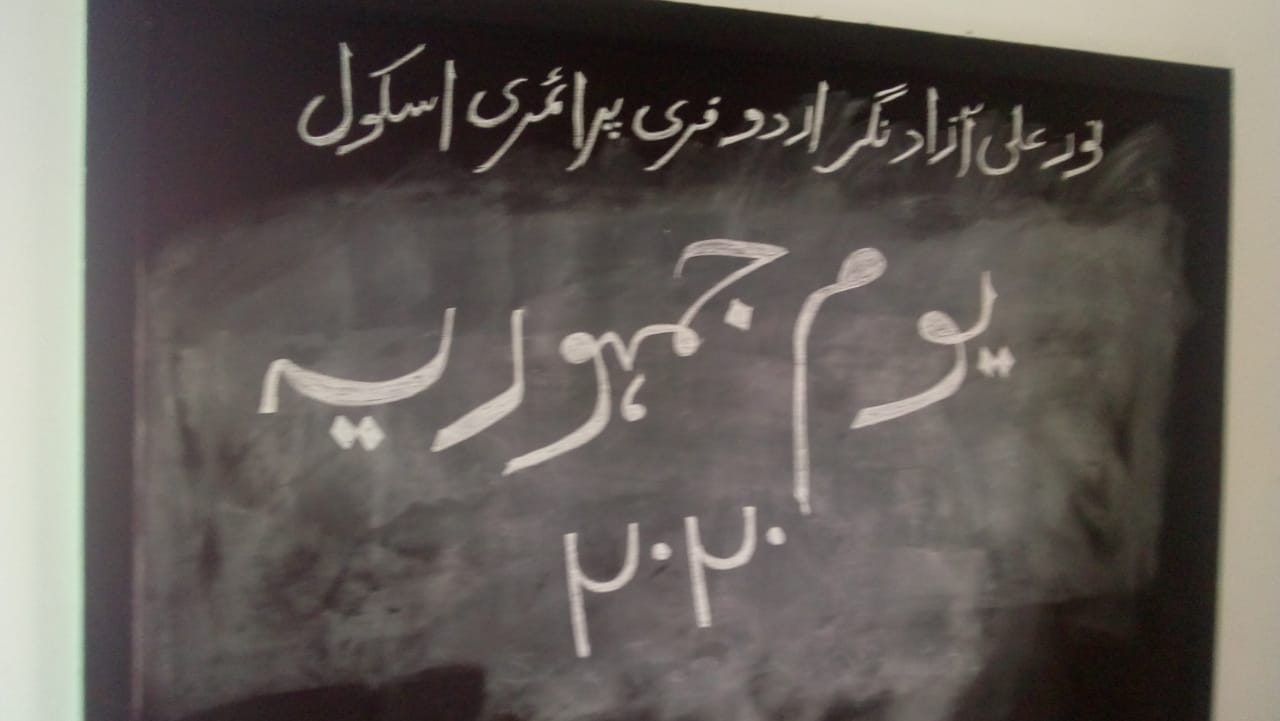 نور علی آزاد نگر اردو فری پرائمری اسکول
یوم جمہوریہ
۲۰۲۰